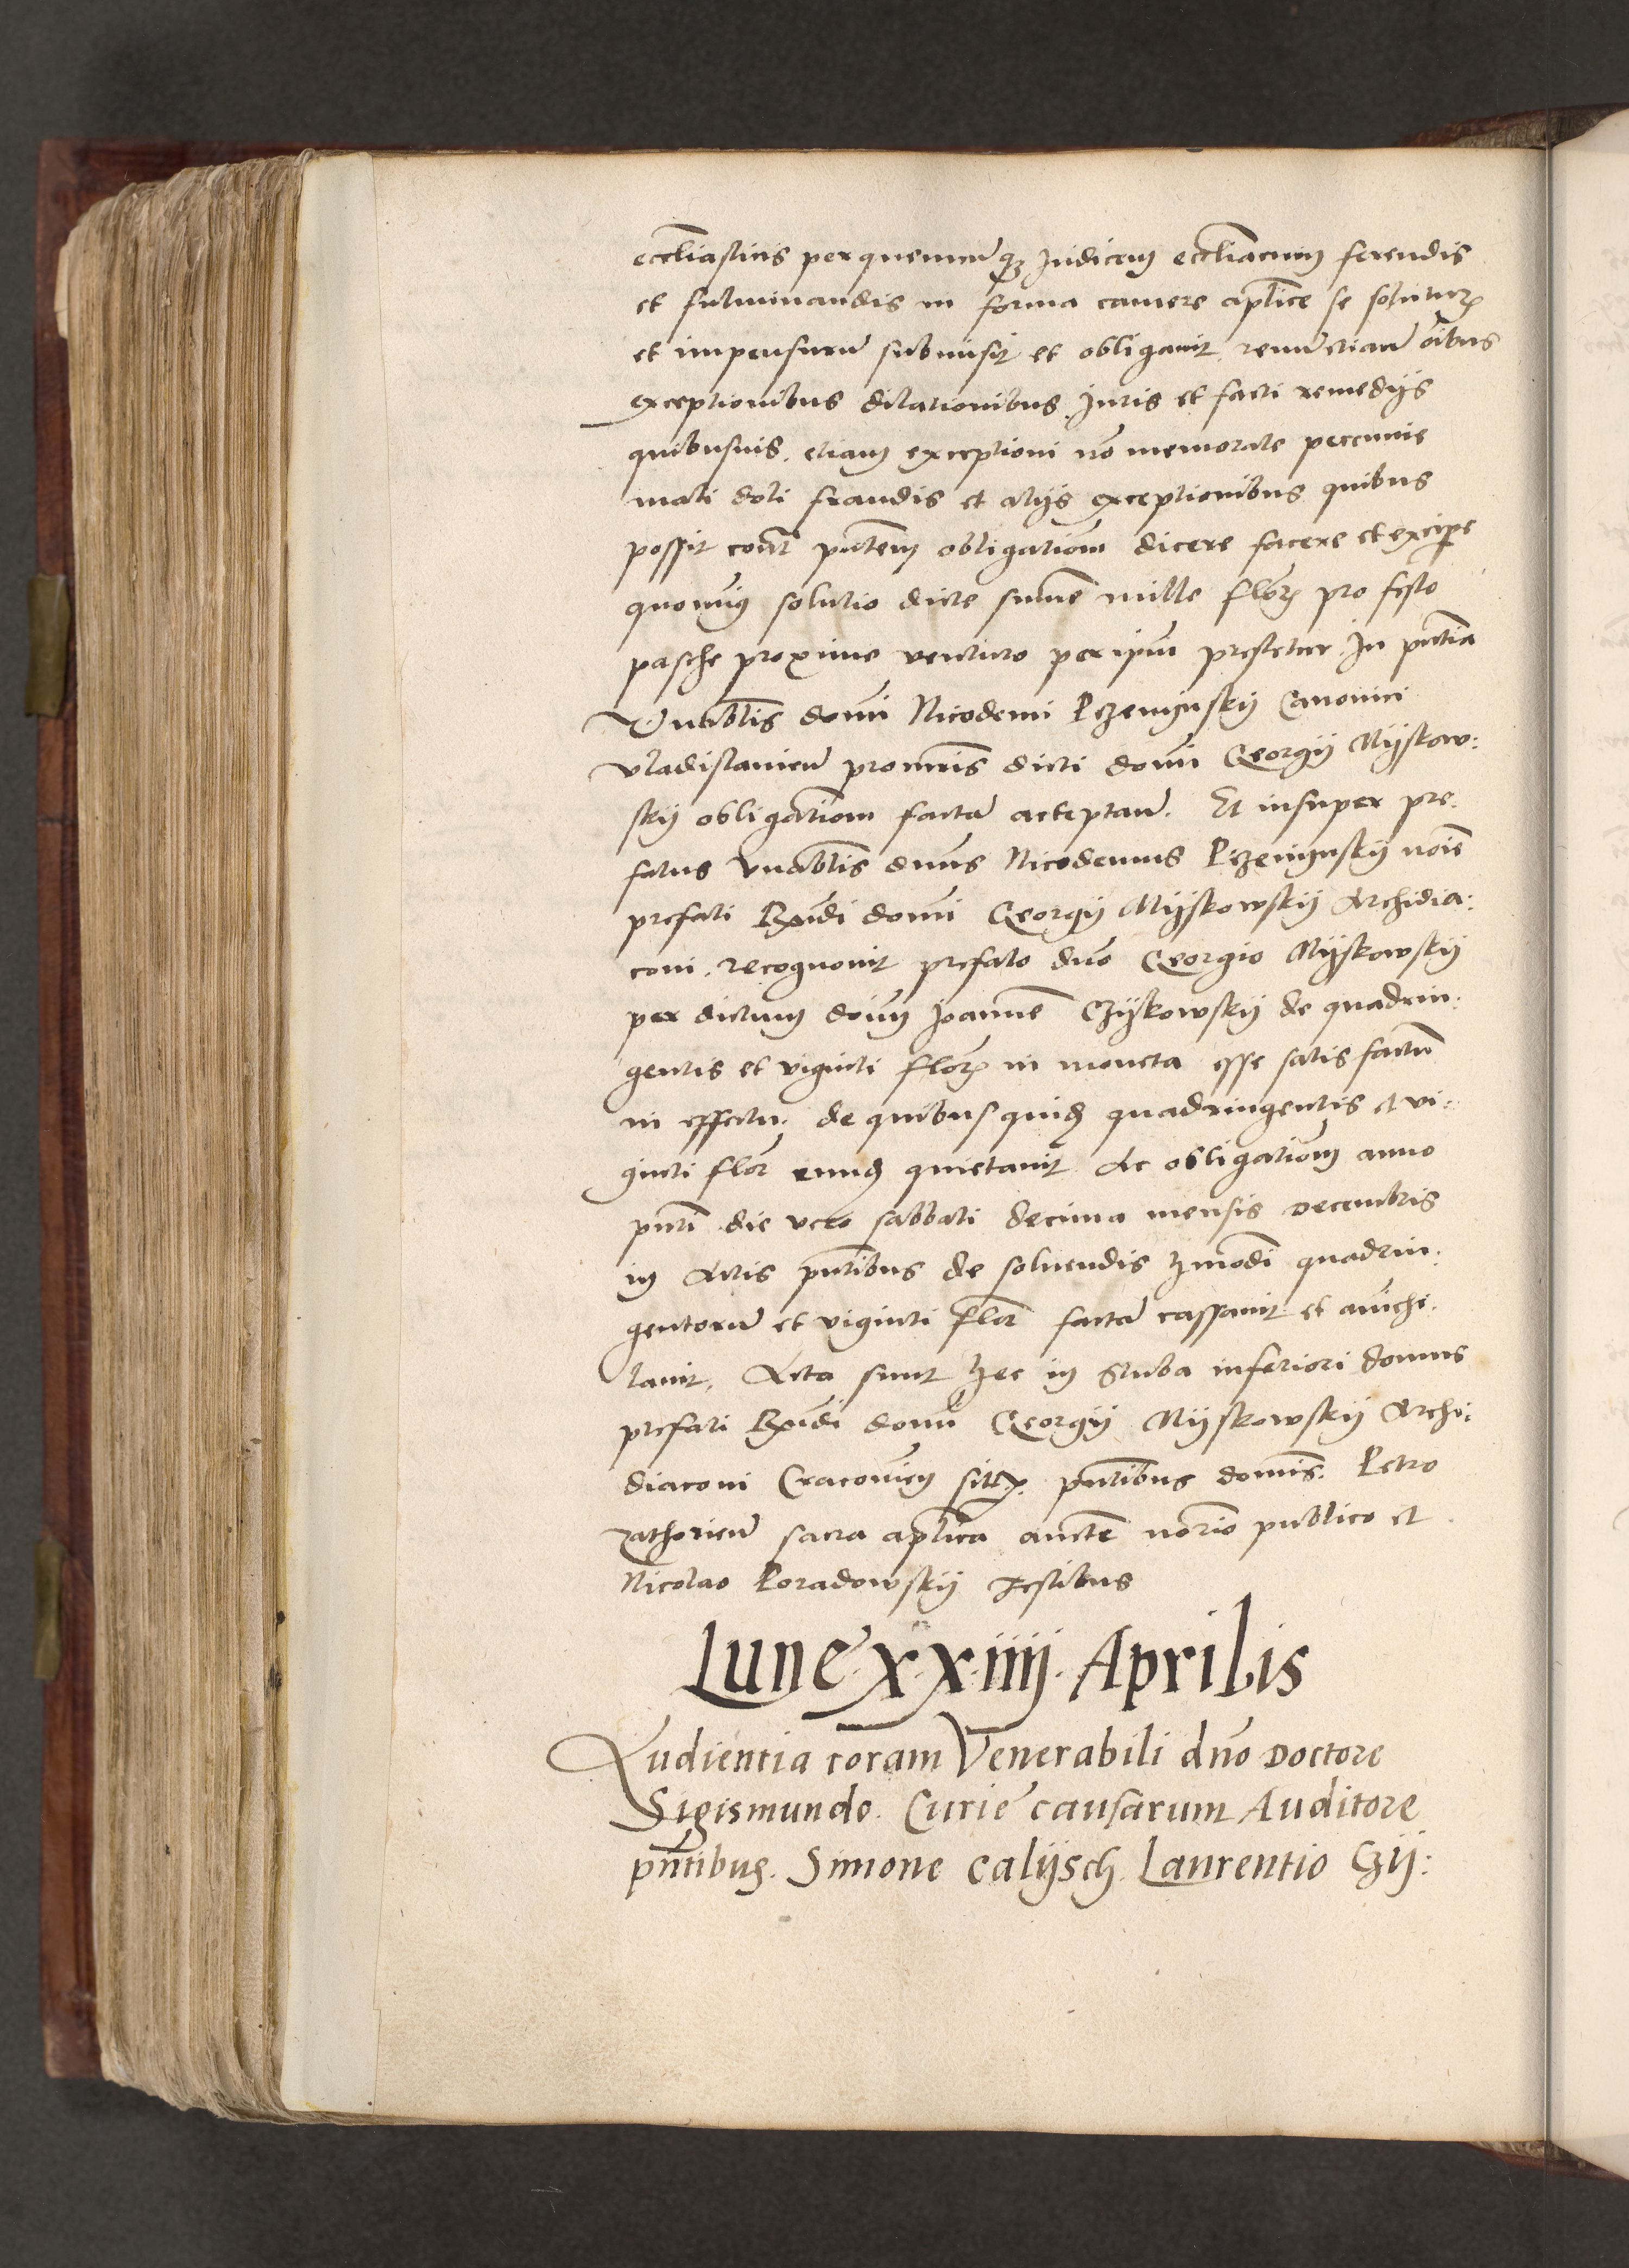 eccl̄iasticis per quemcunq3 Judicem eccl̄iacum ferendis
et fulminandis in forma camere ap̄lice se soluturꝫ
et impensurū submisit et obligauit, renunctiaū oībus
exceptionibus dilationibus Juris et facti remedijs
quibusuis, etiam exceptioni nō memorate peccunie
mali doli fraudis et alijs exceptionibus quibus
possit cont̄ pn̄tem obligatiōm dicere facere et excipe
quominꝯ solutio dicte sum̄e mille florꝫ pro festo
pasche proxime venturo per ip̄m prestetur. In pn̄tia
Vn̄ablis dom̄i Nicodemi Lczenijnskij Canonici
vladislauieñ promis̄ dicti dom̄i Georgij Mijskow:
skij obligatiōm factā acceptanī. Et insuper pre:
fatus Vn̄ablis dn̄us Nicodemus Lczenijnskij noīe
prefati Rxn̄di dom̄i Georgij Mijskowskij Archidia:
coni, recognouit prefato dn̄o Georgio Mijskowskij
per dictum dom̄ Joannē Czijkowskij de quadrin:
gentis et viginti florꝫ in moneta esse satis factū
in effectu, de quibusquidꝫ quadringentis et vi:
ginti flor̄ eundꝫ quietauit Ac obligatiōm anno
pn̄ti die vero sabbati decima mensis Decembris
in Actis pn̄tibus de soluendis hmōdi quadrin:
gentorū et viginti flor̄ factā cassauit et anichi:
lauit, Acta sunt hec in Stuba inferiori domus
prefati Rxn̄di dom̄i Georgij Mijskowskij Archi:
diaconi Cracovieñ sittꝫ pn̄tibus domīs. Petro
sacra ap̄lica auctē nōrio publico et
Nicolao Poradowskij testibus
Lune.x.x.iiij. Aprilis
Audientia coram Venerabili dn̄o Doctore
Sigismundo. Curie causarum Auditore
pn̄tibus. Simone Calijsch. Laurentio Czij: